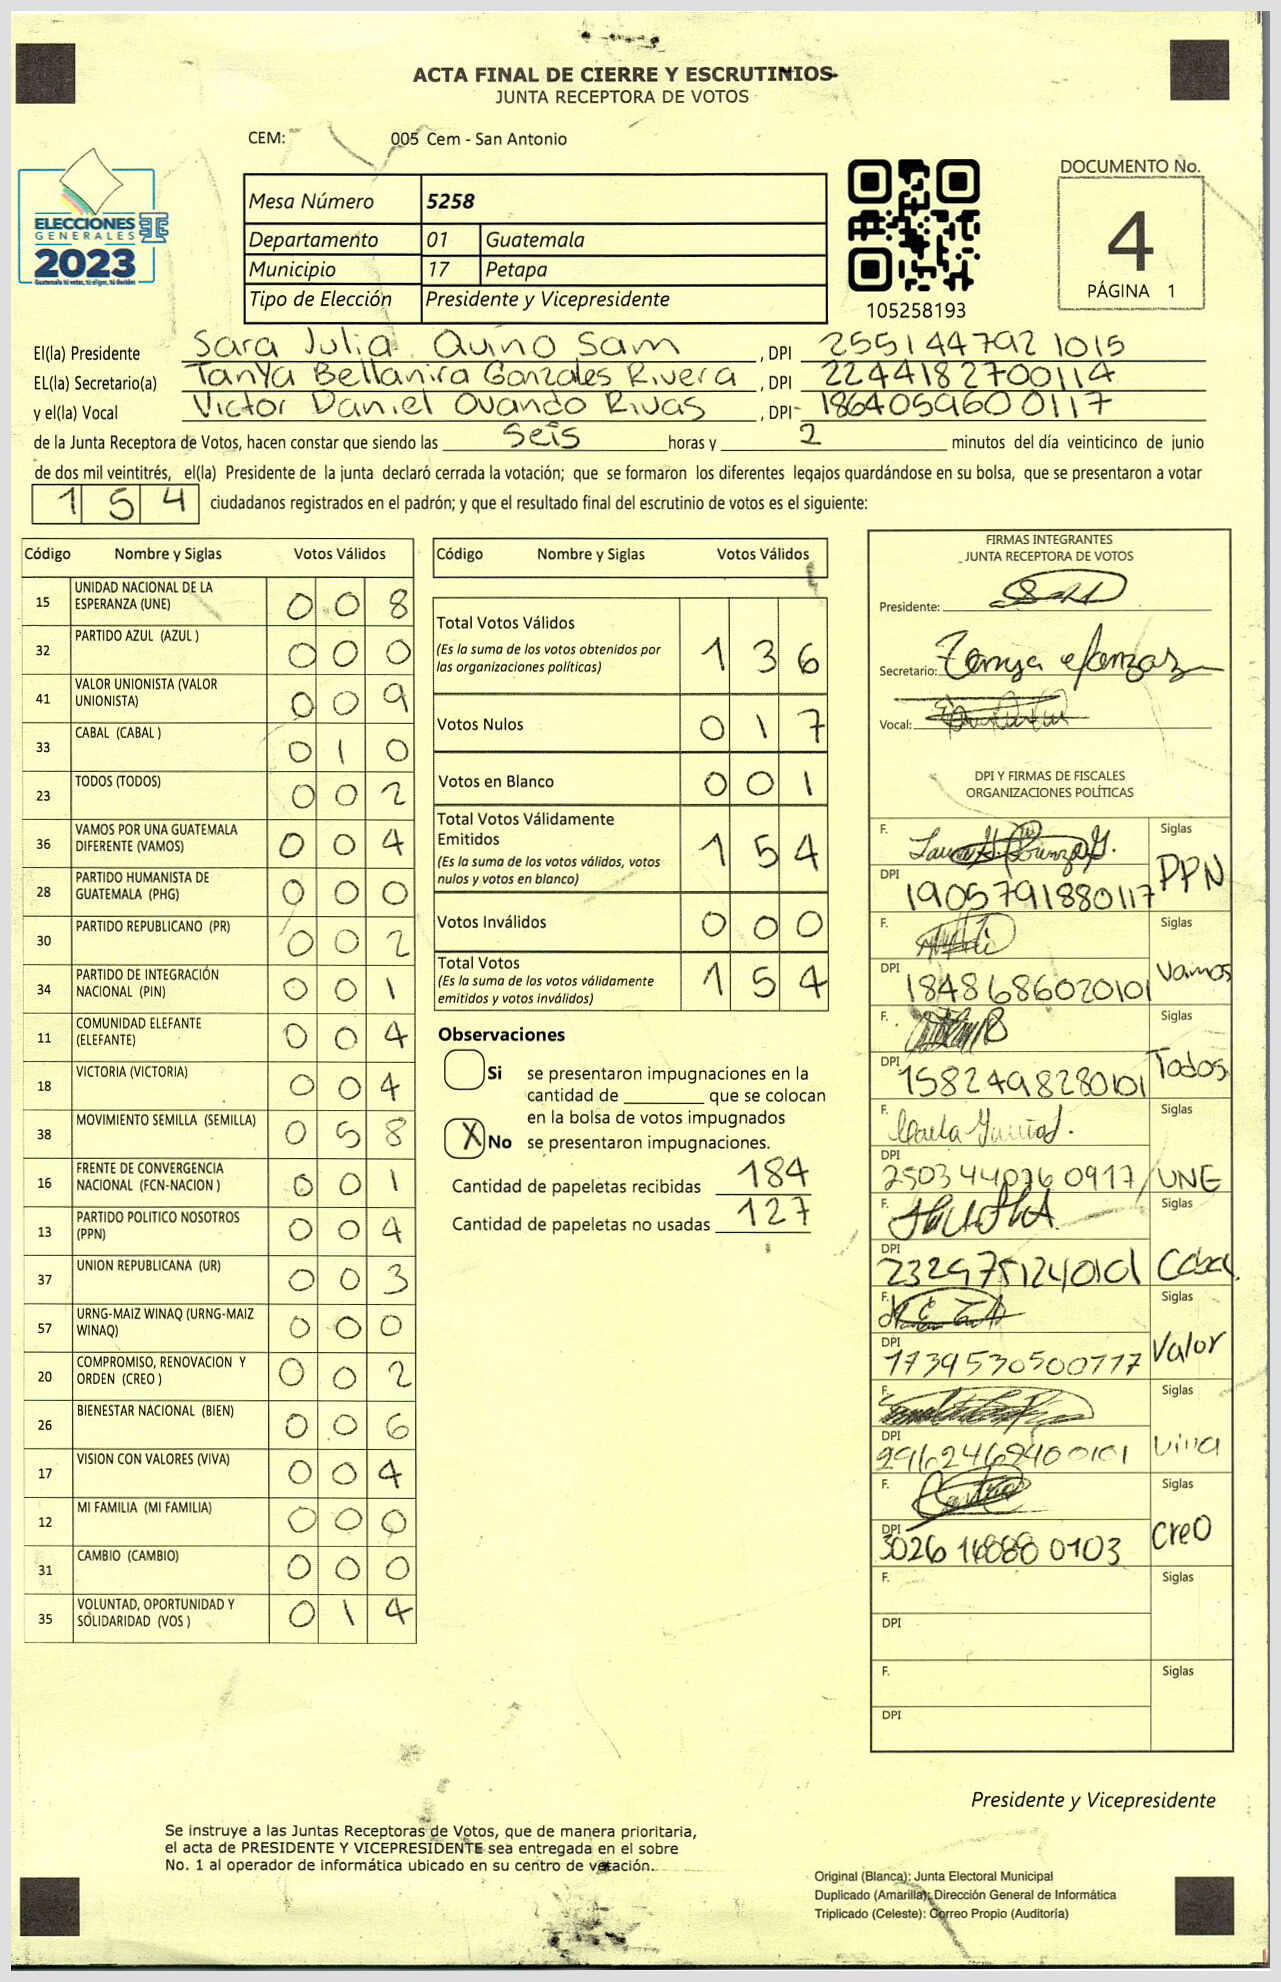 ACTA FINAL DE CIERRE Y ESCRUTINIOS
JUNTA RECEPTORA DE VOTOS
CEM: 005 Cem - San Antonio
ELECCIONES
GENERALES
2023
Mesa Número 5258
Departamento 01 Guatemala
Municipio 17 Petapa
Tipo de Elección Presidente y Vicepresidente
105258193
DOCUMENTO No.
4
PÁGINA 1
El(la) Presidente Sara Julia Quino Sam, DPI 2551447921015
EL(la) Secretario(a) Tanya Bellanira Gonzales Rivera, DPI 2244182700114
y el(la) Vocal Victor Daniel Ovando Rivas, DPI 1864059600117
de la Junta Receptora de Votos, hacen constar que siendo las seis horas y 2 minutos del día veinticinco de junio
de dos mil veintitrés, el(la) Presidente de la junta declaró cerrada la votación; que se formaron los diferentes legajos guardándose en su bolsa, que se presentaron a votar
154 ciudadanos registrados en el padrón; y que el resultado final del escrutinio de votos es el siguiente:
Código Nombre y Siglas Votos Válidos
15 UNIDAD NACIONAL DE LA ESPERANZA (UNE) 008
32 PARTIDO AZUL (AZUL ) 000
41 VALOR UNIONISTA (VALOR UNIONISTA) 009
33 CABAL (CABAL ) 010
23 TODOS (TODOS) 002
36 VAMOS POR UNA GUATEMALA DIFERENTE (VAMOS) 004
28 PARTIDO HUMANISTA DE GUATEMALA (PHG) 000
30 PARTIDO REPUBLICANO (PR) 002
34 PARTIDO DE INTEGRACIÓN NACIONAL (PIN) 001
11 COMUNIDAD ELEFANTE (ELEFANTE) 004
18 VICTORIA (VICTORIA) 004
38 MOVIMIENTO SEMILLA (SEMILLA) 058
16 FRENTE DE CONVERGENCIA NACIONAL (FCN-NACION ) 001
13 PARTIDO POLITICO NOSOTROS (PPN) 004
37 UNION REPUBLICANA (UR) 003
57 URNG-MAIZ WINAQ (URNG-MAIZ WINAQ) 000
20 COMPROMISO, RENOVACION Y ORDEN (CREO ) 002
26 BIENESTAR NACIONAL (BIEN) 006
17 VISION CON VALORES (VIVA) 004
12 MI FAMILIA (MI FAMILIA) 000
31 CAMBIO (CAMBIO) 000
35 VOLUNTAD, OPORTUNIDAD Y SOLIDARIDAD (VOS ) 014
Código Nombre y Siglas Votos Válidos
Total Votos Válidos 136
(Es la suma de los votos obtenidos por
las organizaciones políticas)
Votos Nulos 017
Votos en Blanco 001
Total Votos Válidamente
Emitidos 154
(Es la suma de los votos válidos, votos
nulos y votos en blanco)
Votos Inválidos 000
Total Votos 154
(Es la suma de los votos válidamente
emitidos y votos inválidos)
Observaciones
Si se presentaron impugnaciones en la
cantidad de ________ que se colocan
en la bolsa de votos impugnados
X No se presentaron impugnaciones.
Cantidad de papeletas recibidas 184
Cantidad de papeletas no usadas 127
FIRMAS INTEGRANTES
JUNTA RECEPTORA DE VOTOS
Presidente:
Secretario:
Vocal:
DPI Y FIRMAS DE FISCALES
ORGANIZACIONES POLÍTICAS
F. Siglas PPN
DPI 1905791880117
F. Siglas Vamos
DPI 1848686020101
F. Siglas Todos
DPI 1582498280101
F. Siglas UNE
DPI
F. Siglas Cabal
DPI
F. Siglas Valor
DPI
F. Siglas viva
DPI
F. Siglas CreO
DPI
F. Siglas
DPI
F. Siglas
DPI
Presidente y Vicepresidente
Se instruye a las Juntas Receptoras de Votos, que de manera prioritaria,
el acta de PRESIDENTE Y VICEPRESIDENTE sea entregada en el sobre
No. 1 al operador de informática ubicado en su centro de votación.
Original (Blanca): Junta Electoral Municipal
Duplicado (Amarilla): Dirección General de Informática
Triplicado (Celeste): Correo Propio (Auditoría)